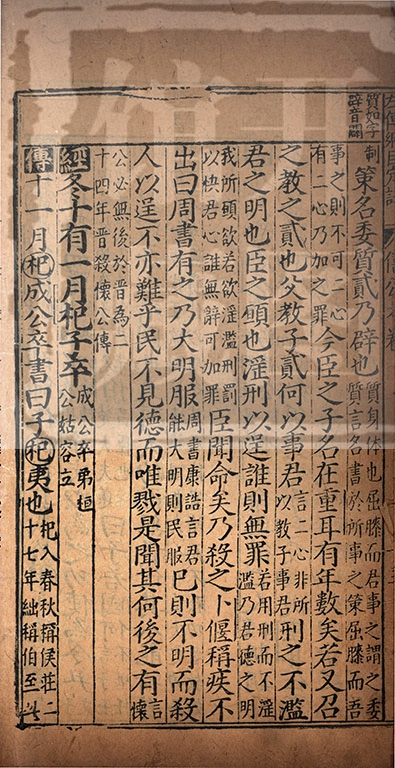 質如字
辟音闢
制策名委質貳乃辟也質身体也屈膝而君事之謂之委
質言名書於所事之策屈膝而吾
事之則不可二心
有二心乃加之罪今臣之子名在重耳有年數矣若又召
之教之貳也父教子貳何以事君言二心非所
以教子事君刑之不濫
君之明也臣之願也淫刑以逞誰則無罪若用刑而不淫
濫乃君德之明
我所願欲若欲淫濫刑罰
以快君心誰無辭可加罪臣聞命矣乃殺之卜偃稱疾不
出曰周書有之乃大明服周書康誥言君
能大明則民服已則不明而殺
人以逞不亦難乎民不見德而唯戮是聞其何後之有言
懷
公必無後於晉為二
十四年晉殺懷公傳
經冬十有一月杞子卒成公卒弟桓
公姑容立
傳十一月杞成公卒書曰子杞夷也杞入春秋稱侯莊二
十七年絀稱伯至此